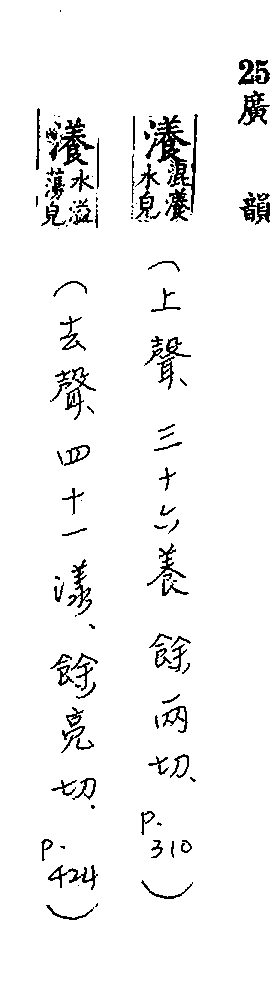 25 廣韻
瀁 滉瀁水皃 (上聲、三十六養 餘兩切、p.310)
瀁 水溢蕩皃 (去聲、四十一漾、餘亮切、p.424)